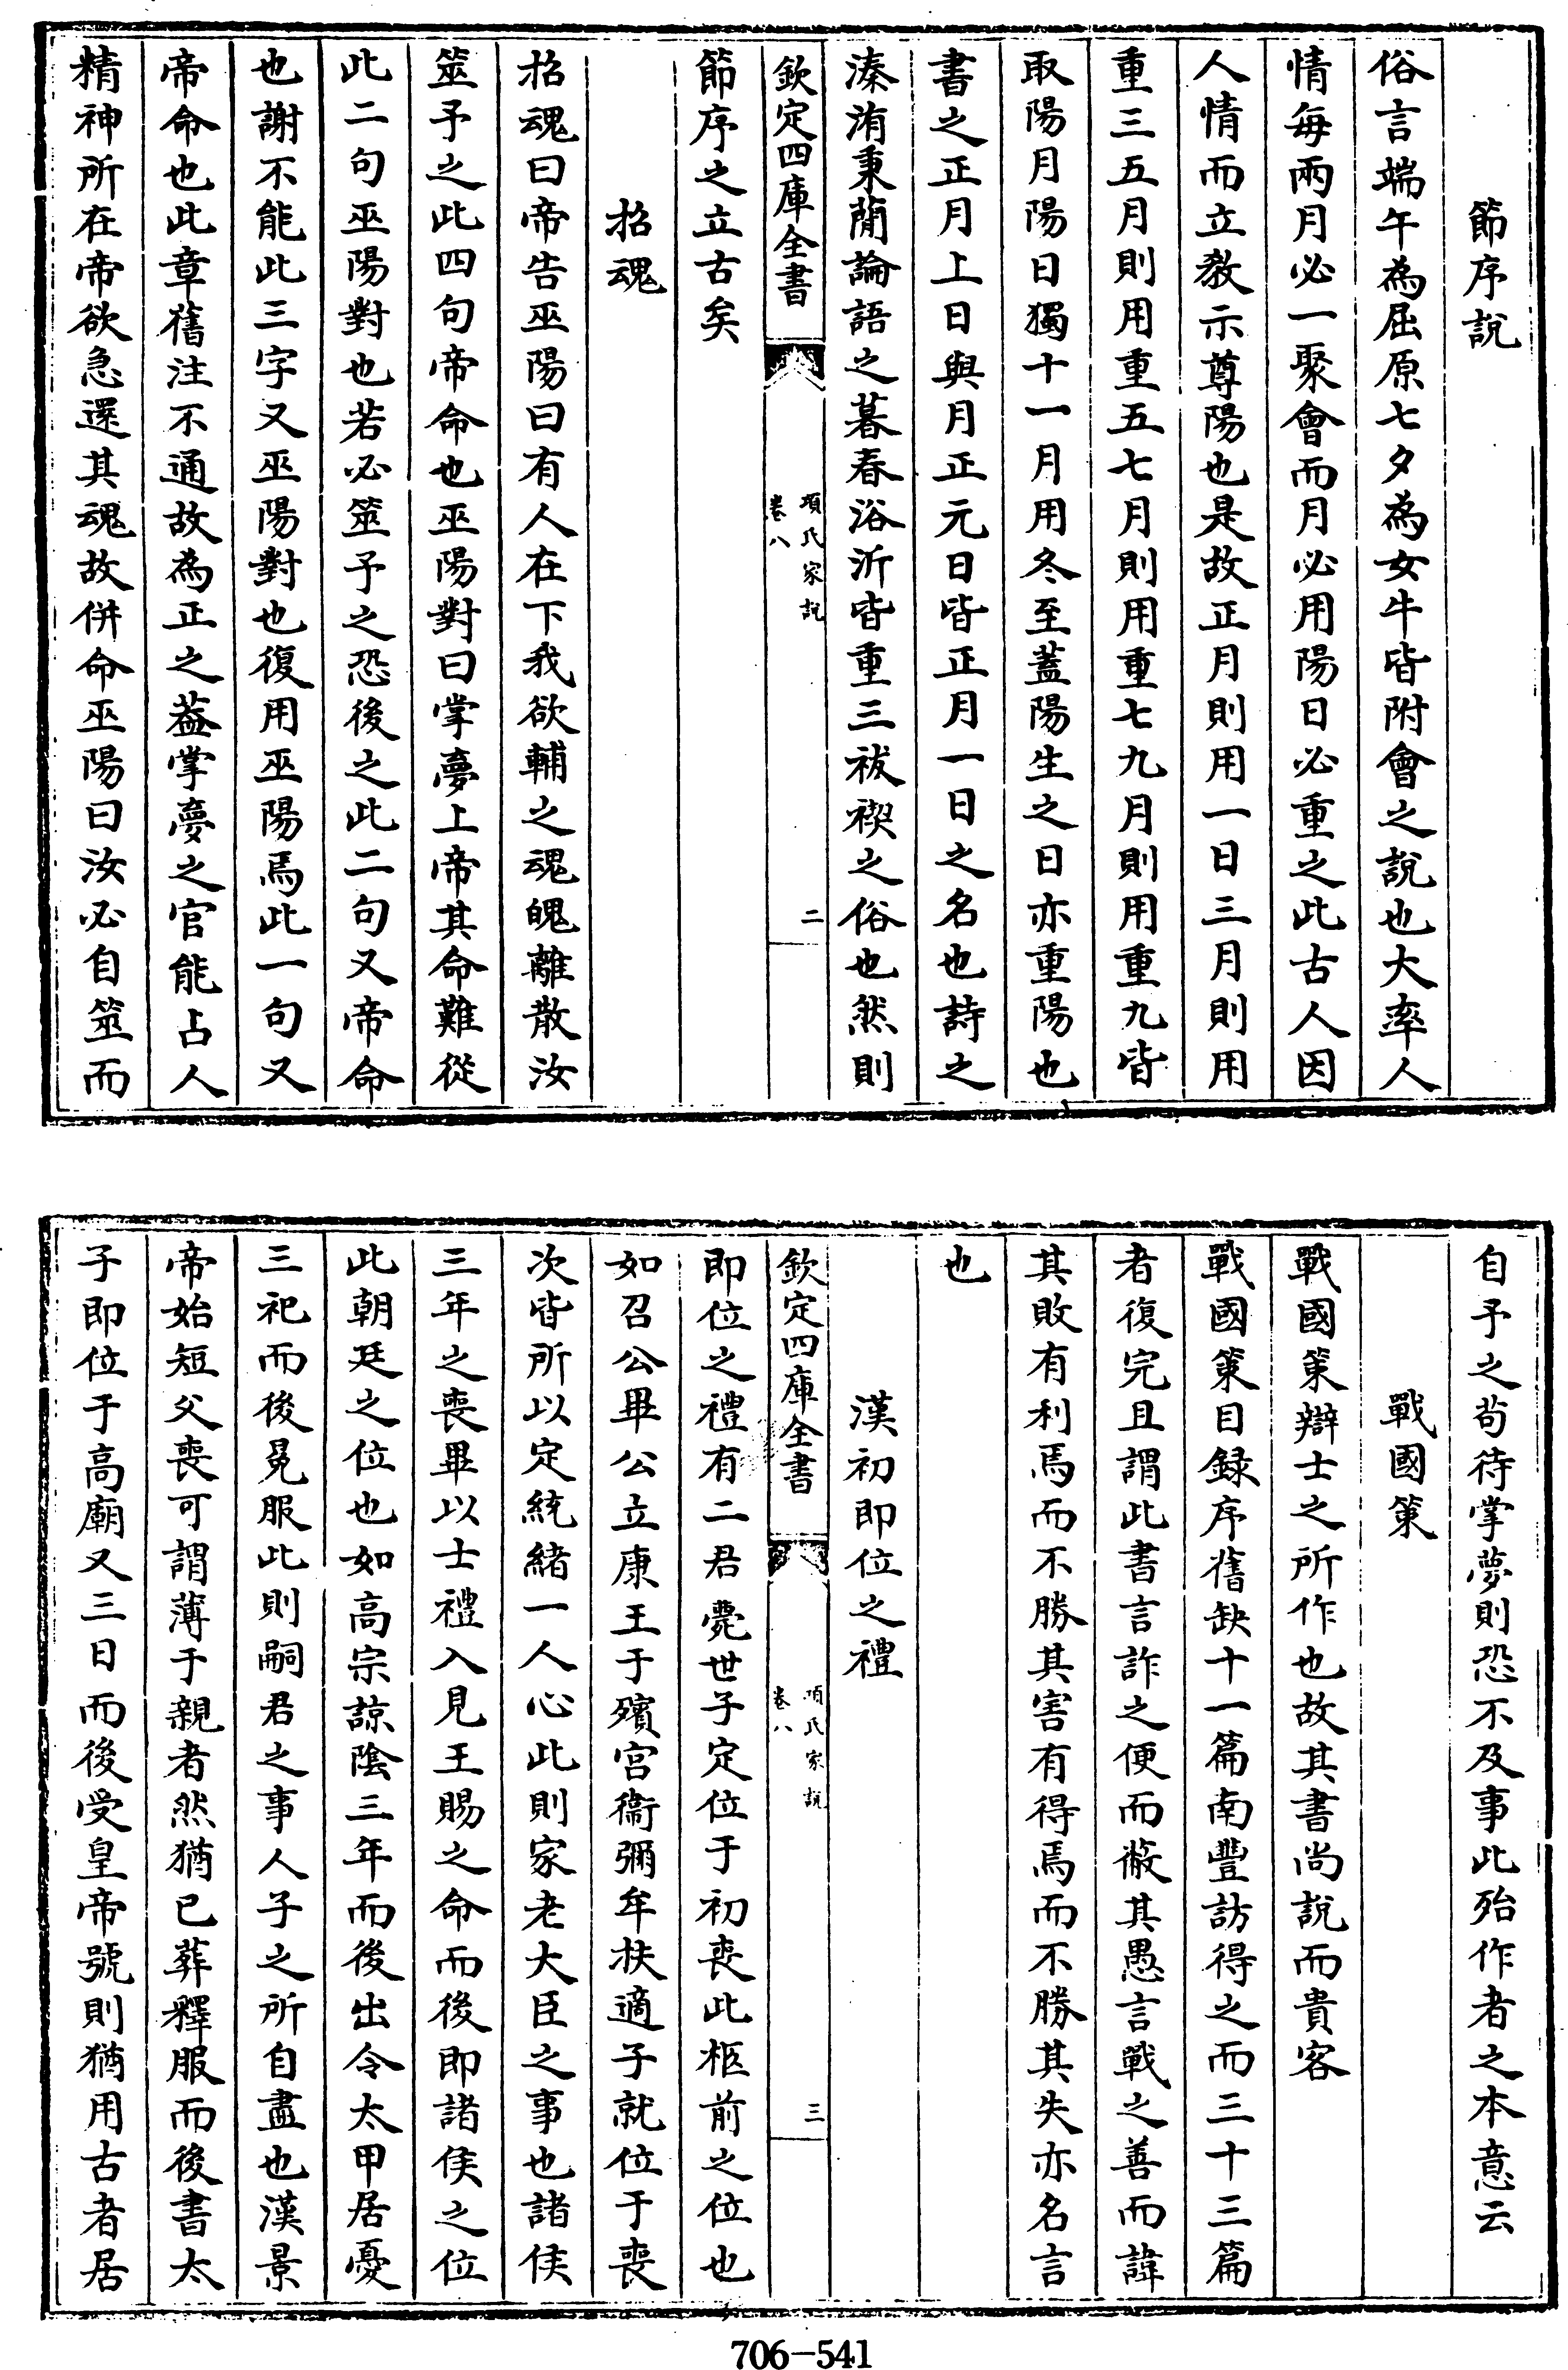 節序說
俗言端午為屈原七夕為女牛皆附會之說也大率人
情每兩月必一聚會而月必用陽日必重之此古人因
人情而立教示尊陽也是故正月則用一日三月則用
重三五月則用重五七月則用重七九月則用重九皆
取陽月陽日獨十一月用冬至蓋陽生之日亦重陽也
書之正月上日與月正元日皆正月一日之名也詩之
溱洧秉蕑論語之暮春浴沂皆重三祓禊之俗也然則
欽定四庫全書
項氏家說
卷八
二
節序之立古矣
招魂
招魂曰帝告巫陽曰有人在下我欲輔之魂魄離散汝
筮予之此四句帝命也巫陽對曰掌夢上帝其命難從
此二句巫陽對也若必筮予之恐後之此二句又帝命
也謝不能此三字又巫陽對也復用巫陽焉此一句又
帝命也此章舊注不通故為正之蓋掌夢之官能占人
精神所在帝欲急還其魂故併命巫陽曰汝必自筮而
自予之苟待掌夢則恐不及事此殆作者之本意云
戰國策
戰國策辯士之所作也故其書尚說而貴客
戰國策目録序舊缺十一篇南豐訪得之而三十三篇
者復完且謂此書言詐之便而蔽其愚言戰之善而諱
其敗有利焉而不勝其害有得焉而不勝其失亦名言
也
漢初即位之禮
欽定四庫全書
項氏家說
卷八
三
即位之禮有二君薨世子定位于初喪此柩前之位也
如召公畢公立康王于殯宫衞彌牟扶適子就位于喪
次皆所以定統緒一人心此則家老大臣之事也諸侯
三年之喪畢以士禮入見王賜之命而後即諸侯之位
此朝廷之位也如高宗諒陰三年而後出令太甲居憂
三祀而後冕服此則嗣君之事人子之所自盡也漢景
帝始短父喪可謂薄于親者然猶已葬釋服而後書太
子即位于高廟又三日而後受皇帝號則猶用古者居
706-541